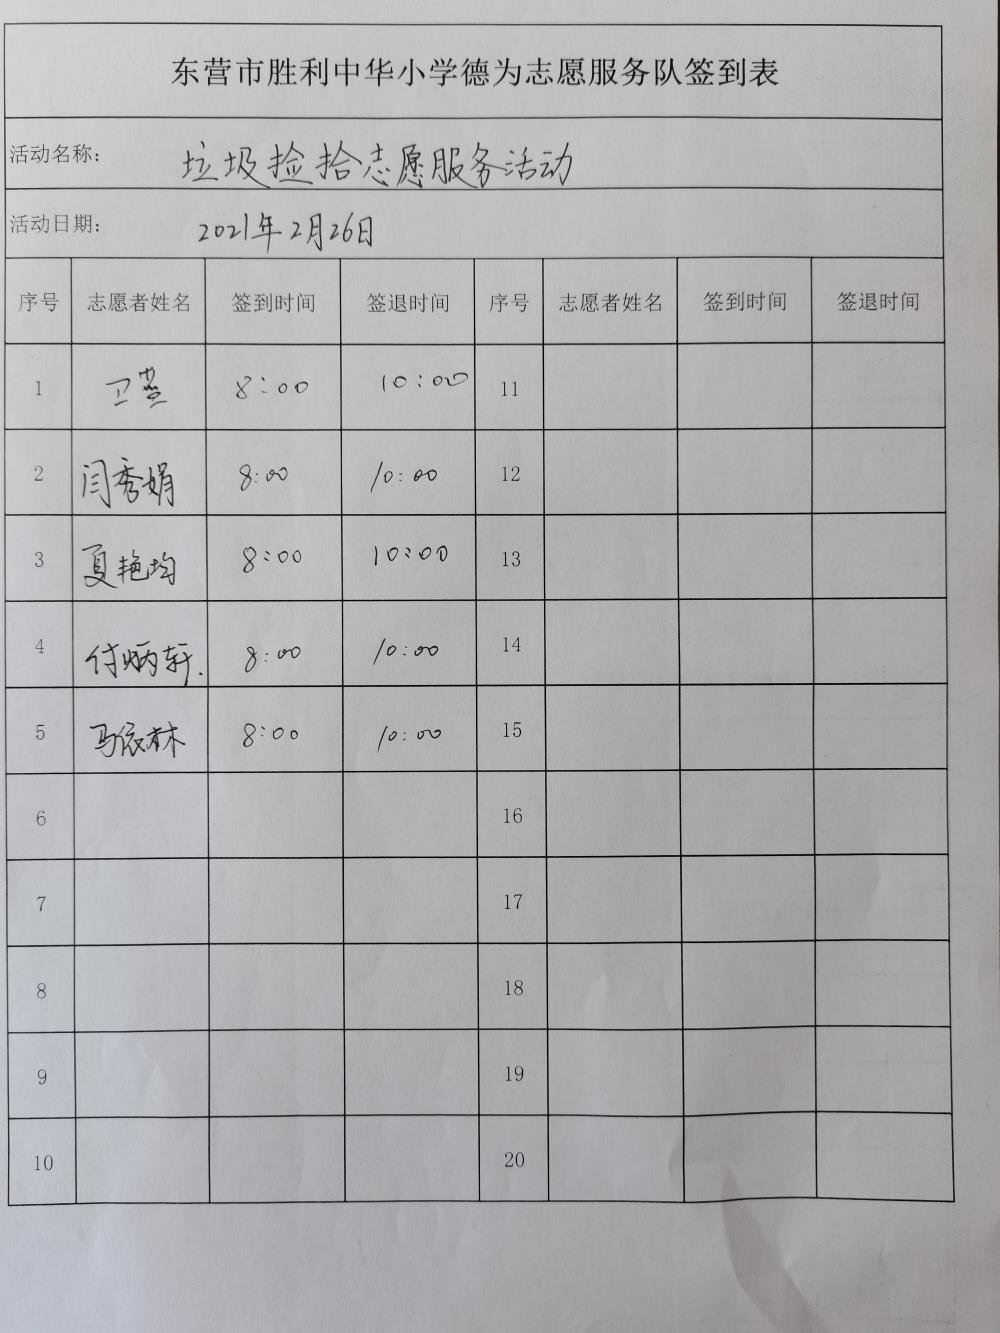 东营市胜利中华小学德为志愿服务队签到表
活动名称： 垃圾捡拾志愿服务活动
活动日期： 2021年2月26日
序号 志愿者姓名 签到时间 签退时间 序号 志愿者姓名 签到时间 签退时间
1 卫燕 8:00 10:00 11
2 闫秀娟 8:00 10:00 12
3 夏艳均 8:00 10:00 13
4 付炳轩. 8:00 10:00 14
5 马依林 8:00 10:00 15
6 16
7 17
8 18
9 19
10 20